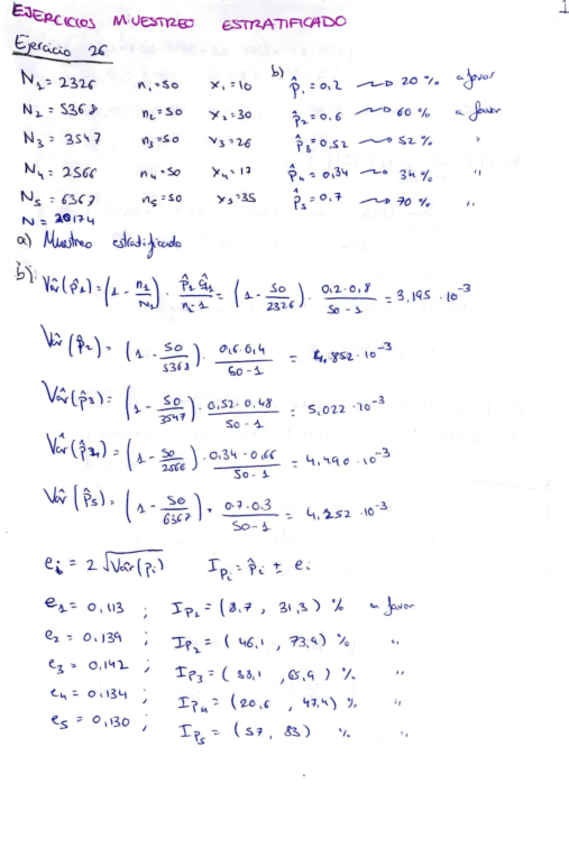 EJERCICIOS MUESTREO ESTRATIFICADO
1
Ejercicio 26
N₁ = 2326 n₁ = 50 x₁ = 10 b) p̂₁ = 0,2 ⟿ 20 % a favor
N₂ = 5368 n₂ = 50 x₂ = 30 p̂₂ = 0,6 ⟿ 60 % a favor
N₃ = 3547 n₃ = 50 x₃ = 26 p̂₃ = 0,52 ⟿ 52 % "
N₄ = 2566 n₄ = 50 x₄ = 17 p̂₄ = 0,34 ⟿ 34 % "
N₅ = 6367 n₅ = 50 x₅ = 35 p̂₅ = 0,7 ⟿ 70 % "
N = 20174
a) Muestreo estratificado
b) Vâr(p̂₁) = (1 - n₁/N₁) · p̂₁ q̂₁/n₁-1 = (1 - 50/2326) · 0,2·0,8/50-1 = 3,195 · 10⁻³
Vâr(p̂₂) = (1 - 50/5368) · 0,6·0,4/50-1 = 4,852 · 10⁻³
Vâr(p̂₃) = (1 - 50/3547) · 0,52·0,48/50-1 = 5,022 · 10⁻³
Vâr(p̂₄) = (1 - 50/2566) · 0,34·0,66/50-1 = 4,490 · 10⁻³
Vâr(p̂₅) = (1 - 50/6367) · 0,7·0,3/50-1 = 4,252 · 10⁻³
eᵢ = 2√Vâr(pᵢ) I_pᵢ = p̂ᵢ ± eᵢ
e₁ = 0,113 ; I_p₁ = (8,7 , 31,3) % a favor
e₂ = 0,139 ; I_p₂ = (46,1 , 73,9) % "
e₃ = 0,142 ; I_p₃ = (38,1 , 65,9) % "
e₄ = 0,134 ; I_p₄ = (20,6 , 47,4) % "
e₅ = 0,130 ; I_p₅ = (57, 83) % "